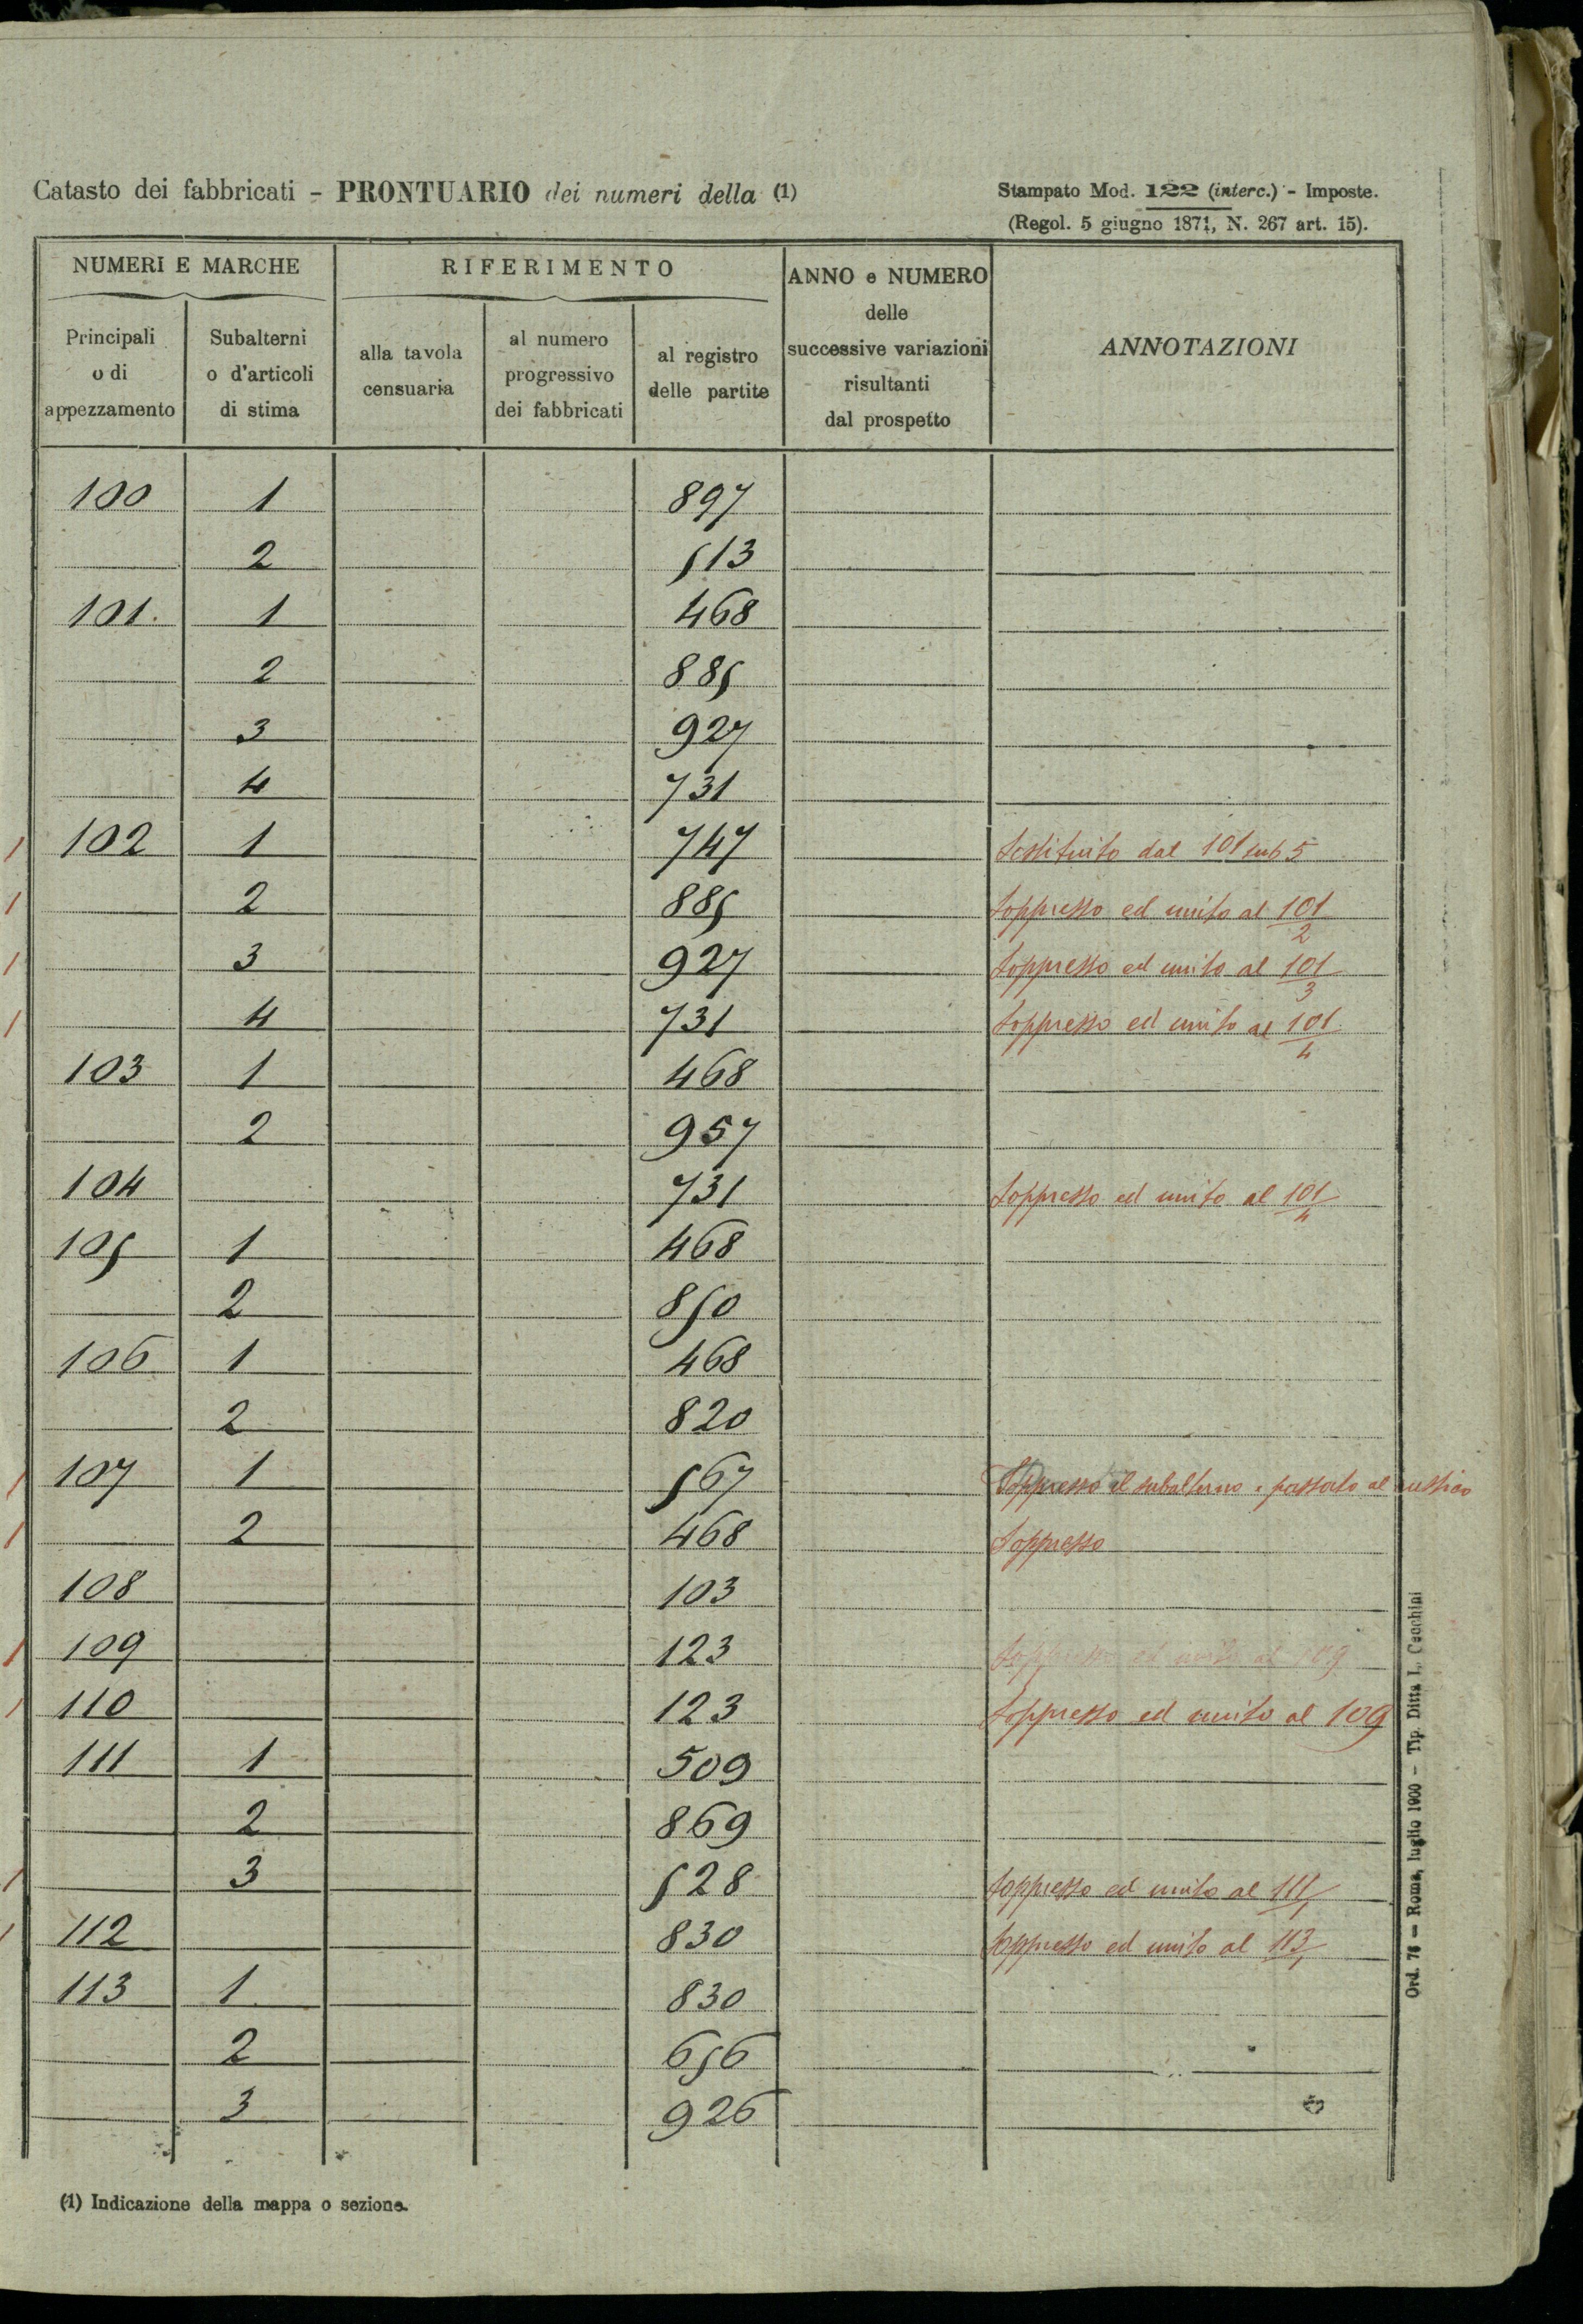 Catasto dei fabbricati - PRONTUARIO dei numeri della (1)
Stampato Mod. 122 (interc.) - Imposte.
(Regol. 5 giugno 1871, N. 267 art. 15).
NUMERI E MARCHE
RIFERIMENTO
ANNO e NUMERO
delle
successive variazioni
risultanti
dal prospetto
ANNOTAZIONI
Principali
o di
appezzamento
Subalterni
o d'articoli
di stima
alla tavola
censuaria
al numero
progressivo
dei fabbricati
al registro
delle partite
100 1 897
2 513
101. 1 468
2 885
3 927
4 731
1 102 1 747 Sostituito dal 101 sub 5
1 2 885 Soppresso ed unito al 101/2
1 3 927 Soppresso ed unito al 101/3
1 4 731 Soppresso ed unito al 101/4
103 1 468
2 957
104 731 Soppresso ed unito al 101/4
105 1 468
2 850
106 1 468
2 820
1 107 1 567 Soppresso il subalterno e passato al rustico
1 2 468 Soppresso
108 103
1 109 123 Soppresso ed unito al 109
1 110 123 Soppresso ed unito al 109
111 1 509
2 869
1 3 528 Soppresso ed unito al 111/1
1 112 830 Soppresso ed unito al 113/1
113 1 830
2 656
3 926
(1) Indicazione della mappa o sezione.
Ord. 76 - Roma, luglio 1900 - Tip. Ditta L. Cecchini